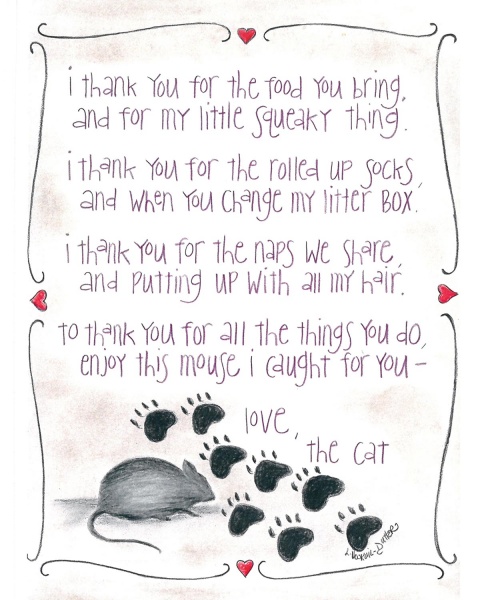 i thank you for the food you bring,
and for my little squeaky thing.
i thank you for the rolled up socks,
and when you change my litter box.
i thank you for the naps we share,
and putting up with all my hair.
to thank you for all the things you do,
enjoy this mouse i caught for you –
love,
the cat